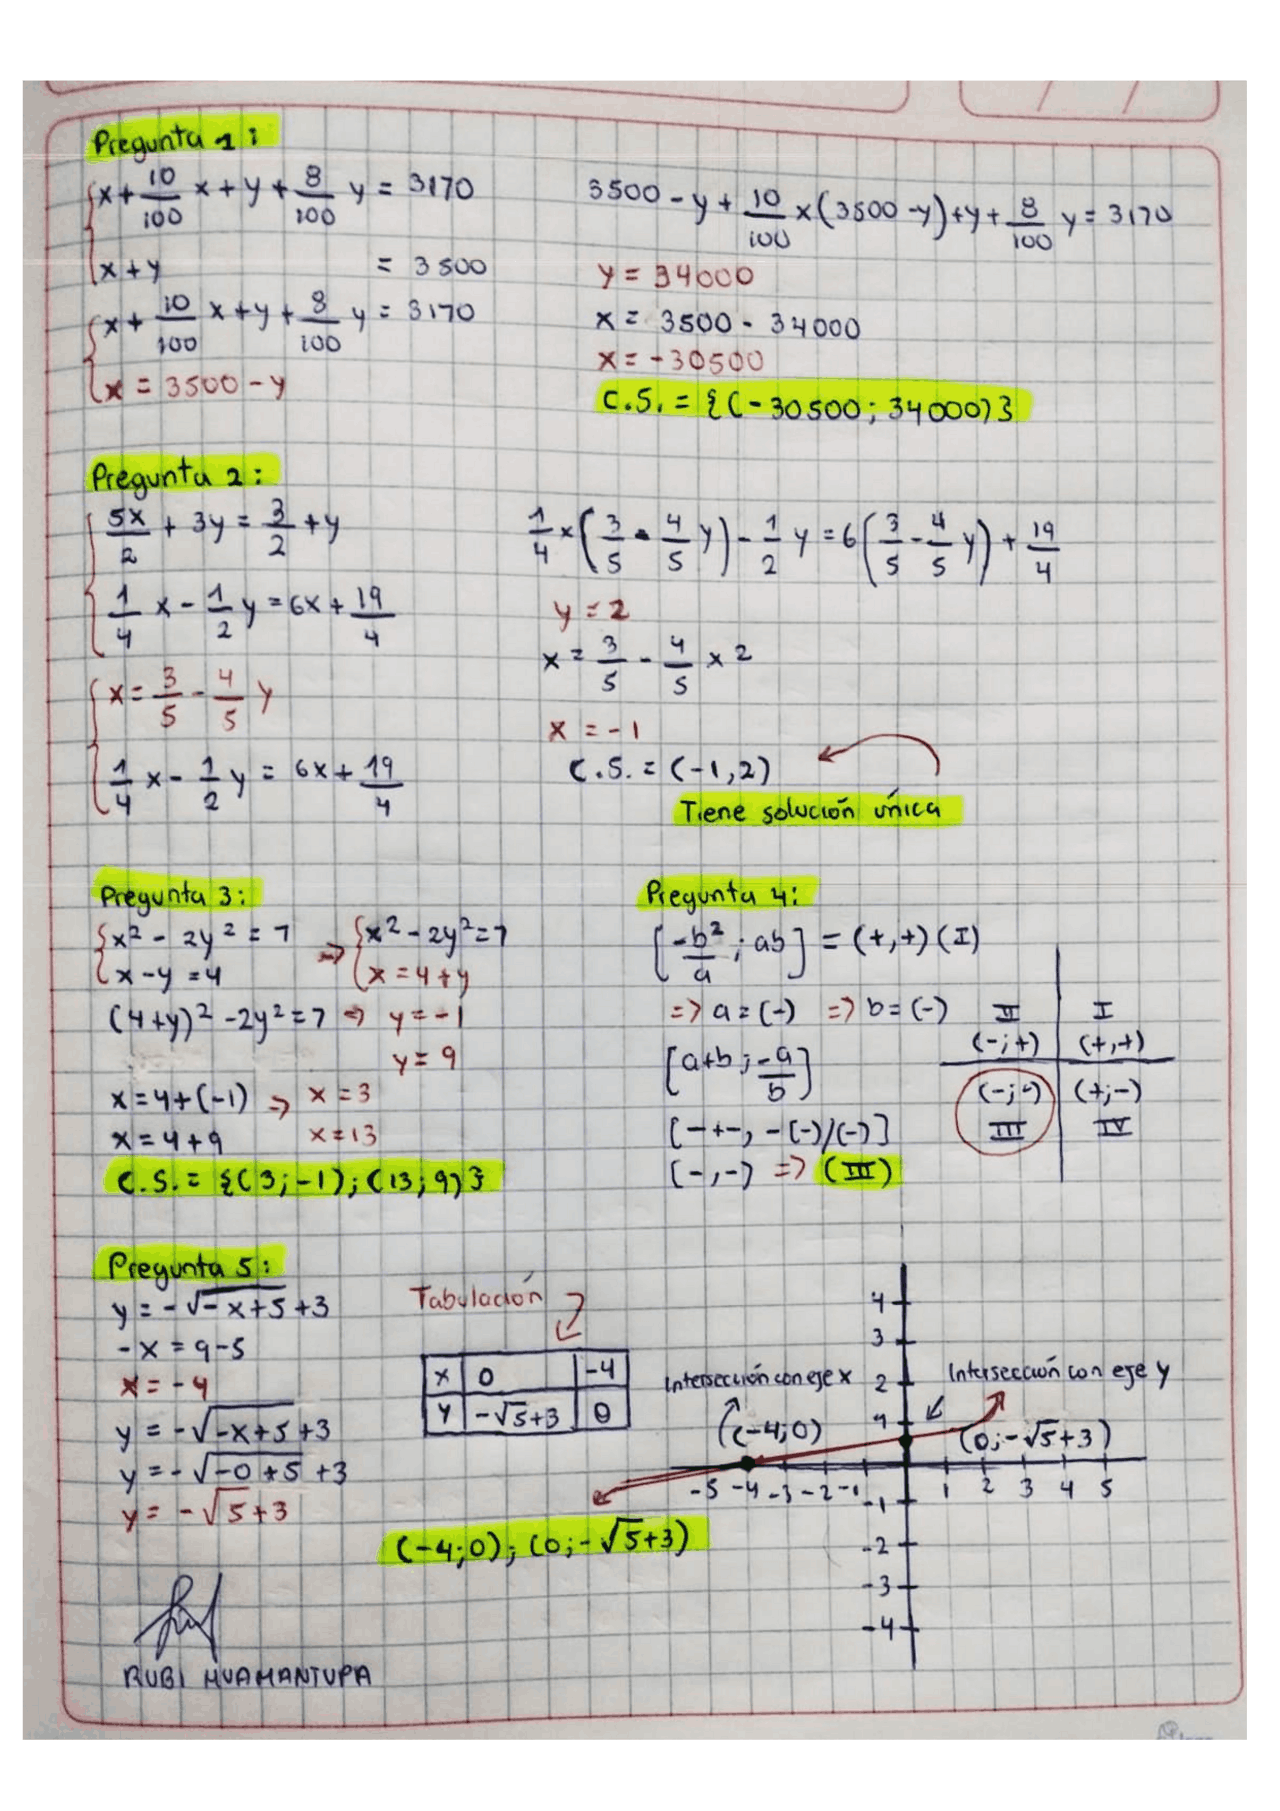 Pregunta 1:
{x + 10/100 x + y + 8/100 y = 3170
x + y = 3500
{x + 10/100 x + y + 8/100 y = 3170
x = 3500 - y
3500 - y + 10/100 x (3500 - y) + y + 8/100 y = 3170
y = 34000
x = 3500 - 34000
x = -30500
C.S. = {(-30500; 34000)}
Pregunta 2:
{5x/2 + 3y = 3/2 + y
1/4 x - 1/2 y = 6x + 19/4
{x = 3/5 - 4/5 y
1/4 x - 1/2 y = 6x + 19/4
1/4 x (3/5 - 4/5 y) - 1/2 y = 6 (3/5 - 4/5 y) + 19/4
y = 2
x = 3/5 - 4/5 x 2
x = -1
C.S. = (-1, 2)
Tiene solución única
Pregunta 3:
{x² - 2y² = 7 => {x² - 2y² = 7
x - y = 4 x = 4 + y
(4 + y)² - 2y² = 7 => y = -1
y = 9
x = 4 + (-1) => x = 3
x = 4 + 9 x = 13
C.S. = {(3; -1); (13; 9)}
Pregunta 4:
[-b²/a ; ab] = (+,+) (I)
=> a = (-) => b = (-)
[a+b ; -a/b]
[-+-, -(-)/(-)]
(-,-) => (III)
II I
(-;+) (+,+)
(-;-) (+;-)
III IV
Pregunta 5:
y = -√-x+5 + 3
-x = 9 - 5
x = -4
y = -√-x+5 + 3
y = -√-0+5 + 3
y = -√5 + 3
Tabulación
x 0 -4
y -√5+3 0
(-4;0); (0; -√5+3)
4
3
Intersección con eje x 2 Intersección con eje y
1
(-4;0) (0; -√5+3)
-5 -4 -3 -2 -1 1 2 3 4 5
-1
-2
-3
-4
RUBI HUAMANTUPA